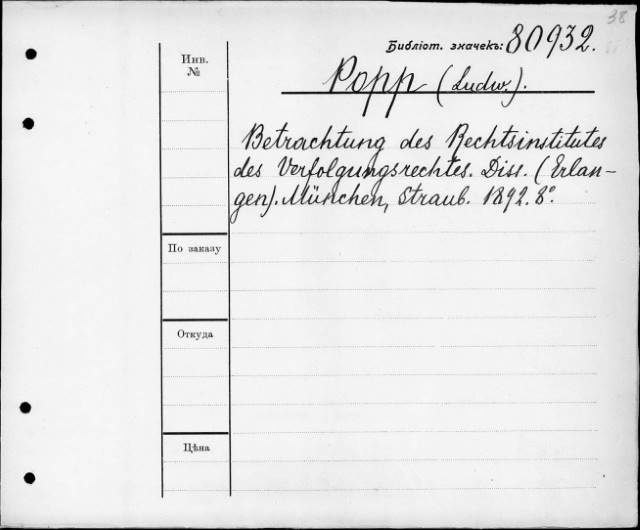 38
Библіот. значекъ: 80932.
Инв.
№
Popp (Ludw.).
Betrachtung des Rechtsinstitutes
des Verfolgungsrechtes. Diss. (Erlan-
gen). München, Straub. 1892. 8°.
По заказу
Откуда
Цѣна